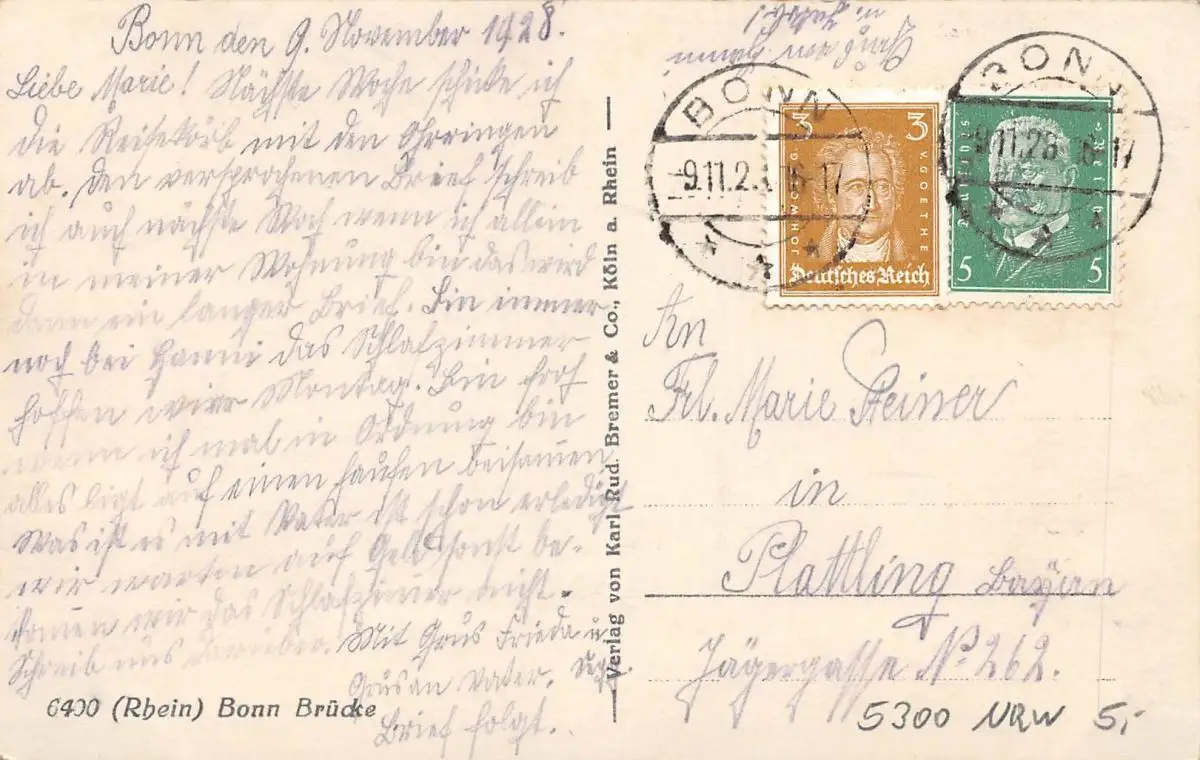 Bonn den 9. November 1928.
Liebe Marie! Nächste Woche schicke ich
die mit den Ohrringen
ab. Den versprochenen Brief schreib
ich auch nächste Woch wenn ich allein
in meiner Wohnung bin das wird
dann ein langer Brief. Bin immer
noch bei Hanni das Schlafzimmer
hoffen wir Montag. Bin froh
wenn ich mal in Ordnung bin
alles ligt auf einen haufen beisamen
Was ist es mit Vater ist schon erledigt
wir warten auf Geld sonst be-
komen wir das Schlafzimer nicht.
Schreib uns darüber. Mit Grus Frieda u
Grus an Vater.
Brief folgt.
6400 (Rhein) Bonn Brücke
Verlag von Karl Rud. Bremer & Co., Köln a. Rhein
Hanni
BONN
9.11.28 16-17
3 3
JOH. WOLFG. V. GOETHE
Deutsches Reich
BONN
9.11.28 16-17
5 5
An
Frl. Marie Steiner
in
Plattling Bayern
Jägergasse No 262.
5300 NRW 5,-